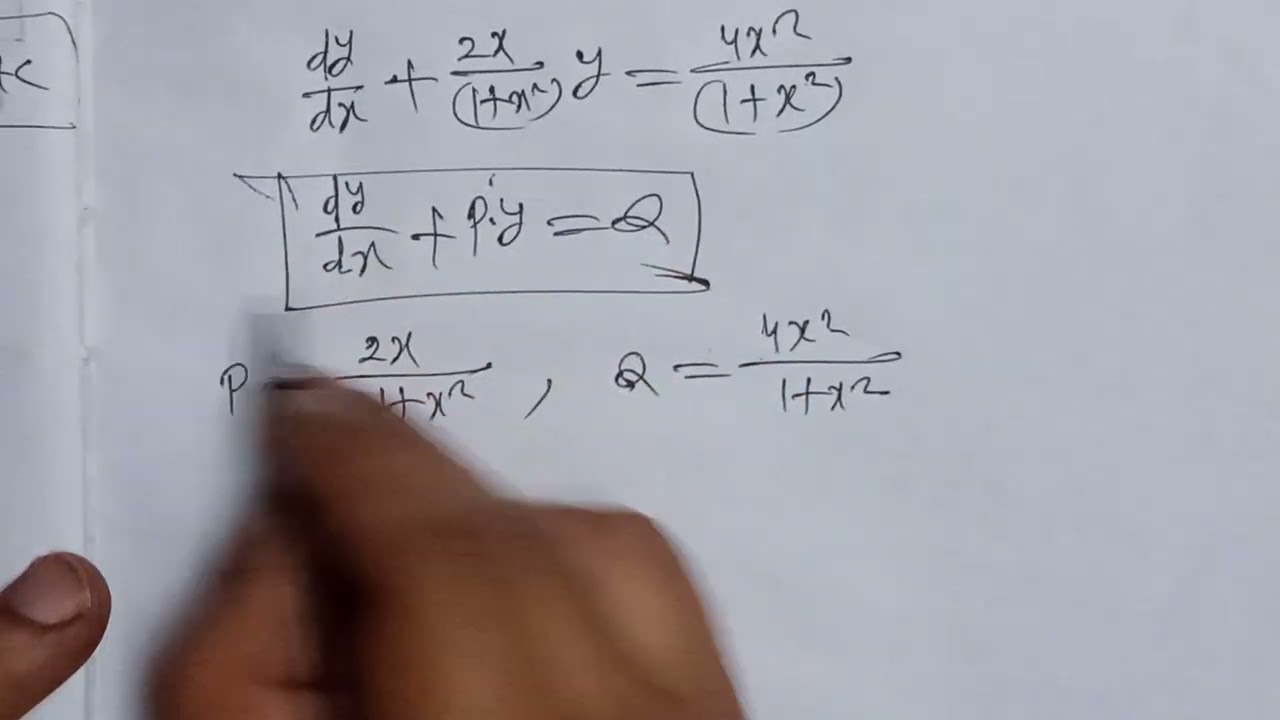 +c
dy/dx + 2x/(1+x²) y = 4x²/(1+x²)
dy/dx + P.y = Q
P = 2x/1+x² , Q = 4x²/1+x²